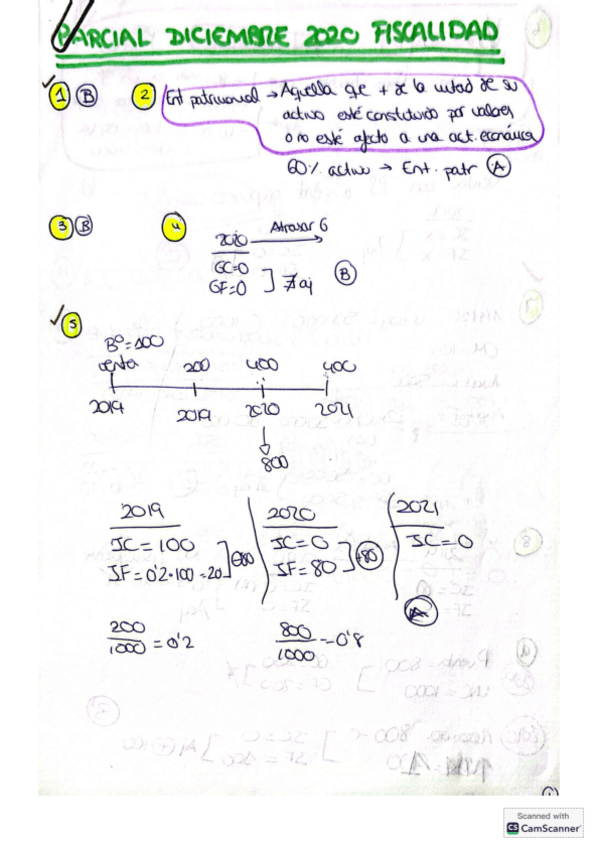 PARCIAL DICIEMBRE 2020 FISCALIDAD
1 B
2 Ent patrimonial → Aquella que + de la mitad de su
activo esté constituido por valores
o no esté afecto a una act. económica
60% activo → Ent. patr A
3 B
4 2020 Atrasar G
GC=0
GF=0 ] ∄ aj B
5
Bº=100
venta 200 400 400
2019 2019 2020 2021
↓
800
2019 2020 2021
IC=100 IC=0 IC=0
IF=0'2·100=20 ] -80 IF=80 ] +80
A
200/1000 = 0'2 800/1000 = 0'8
Scanned with
CS CamScanner